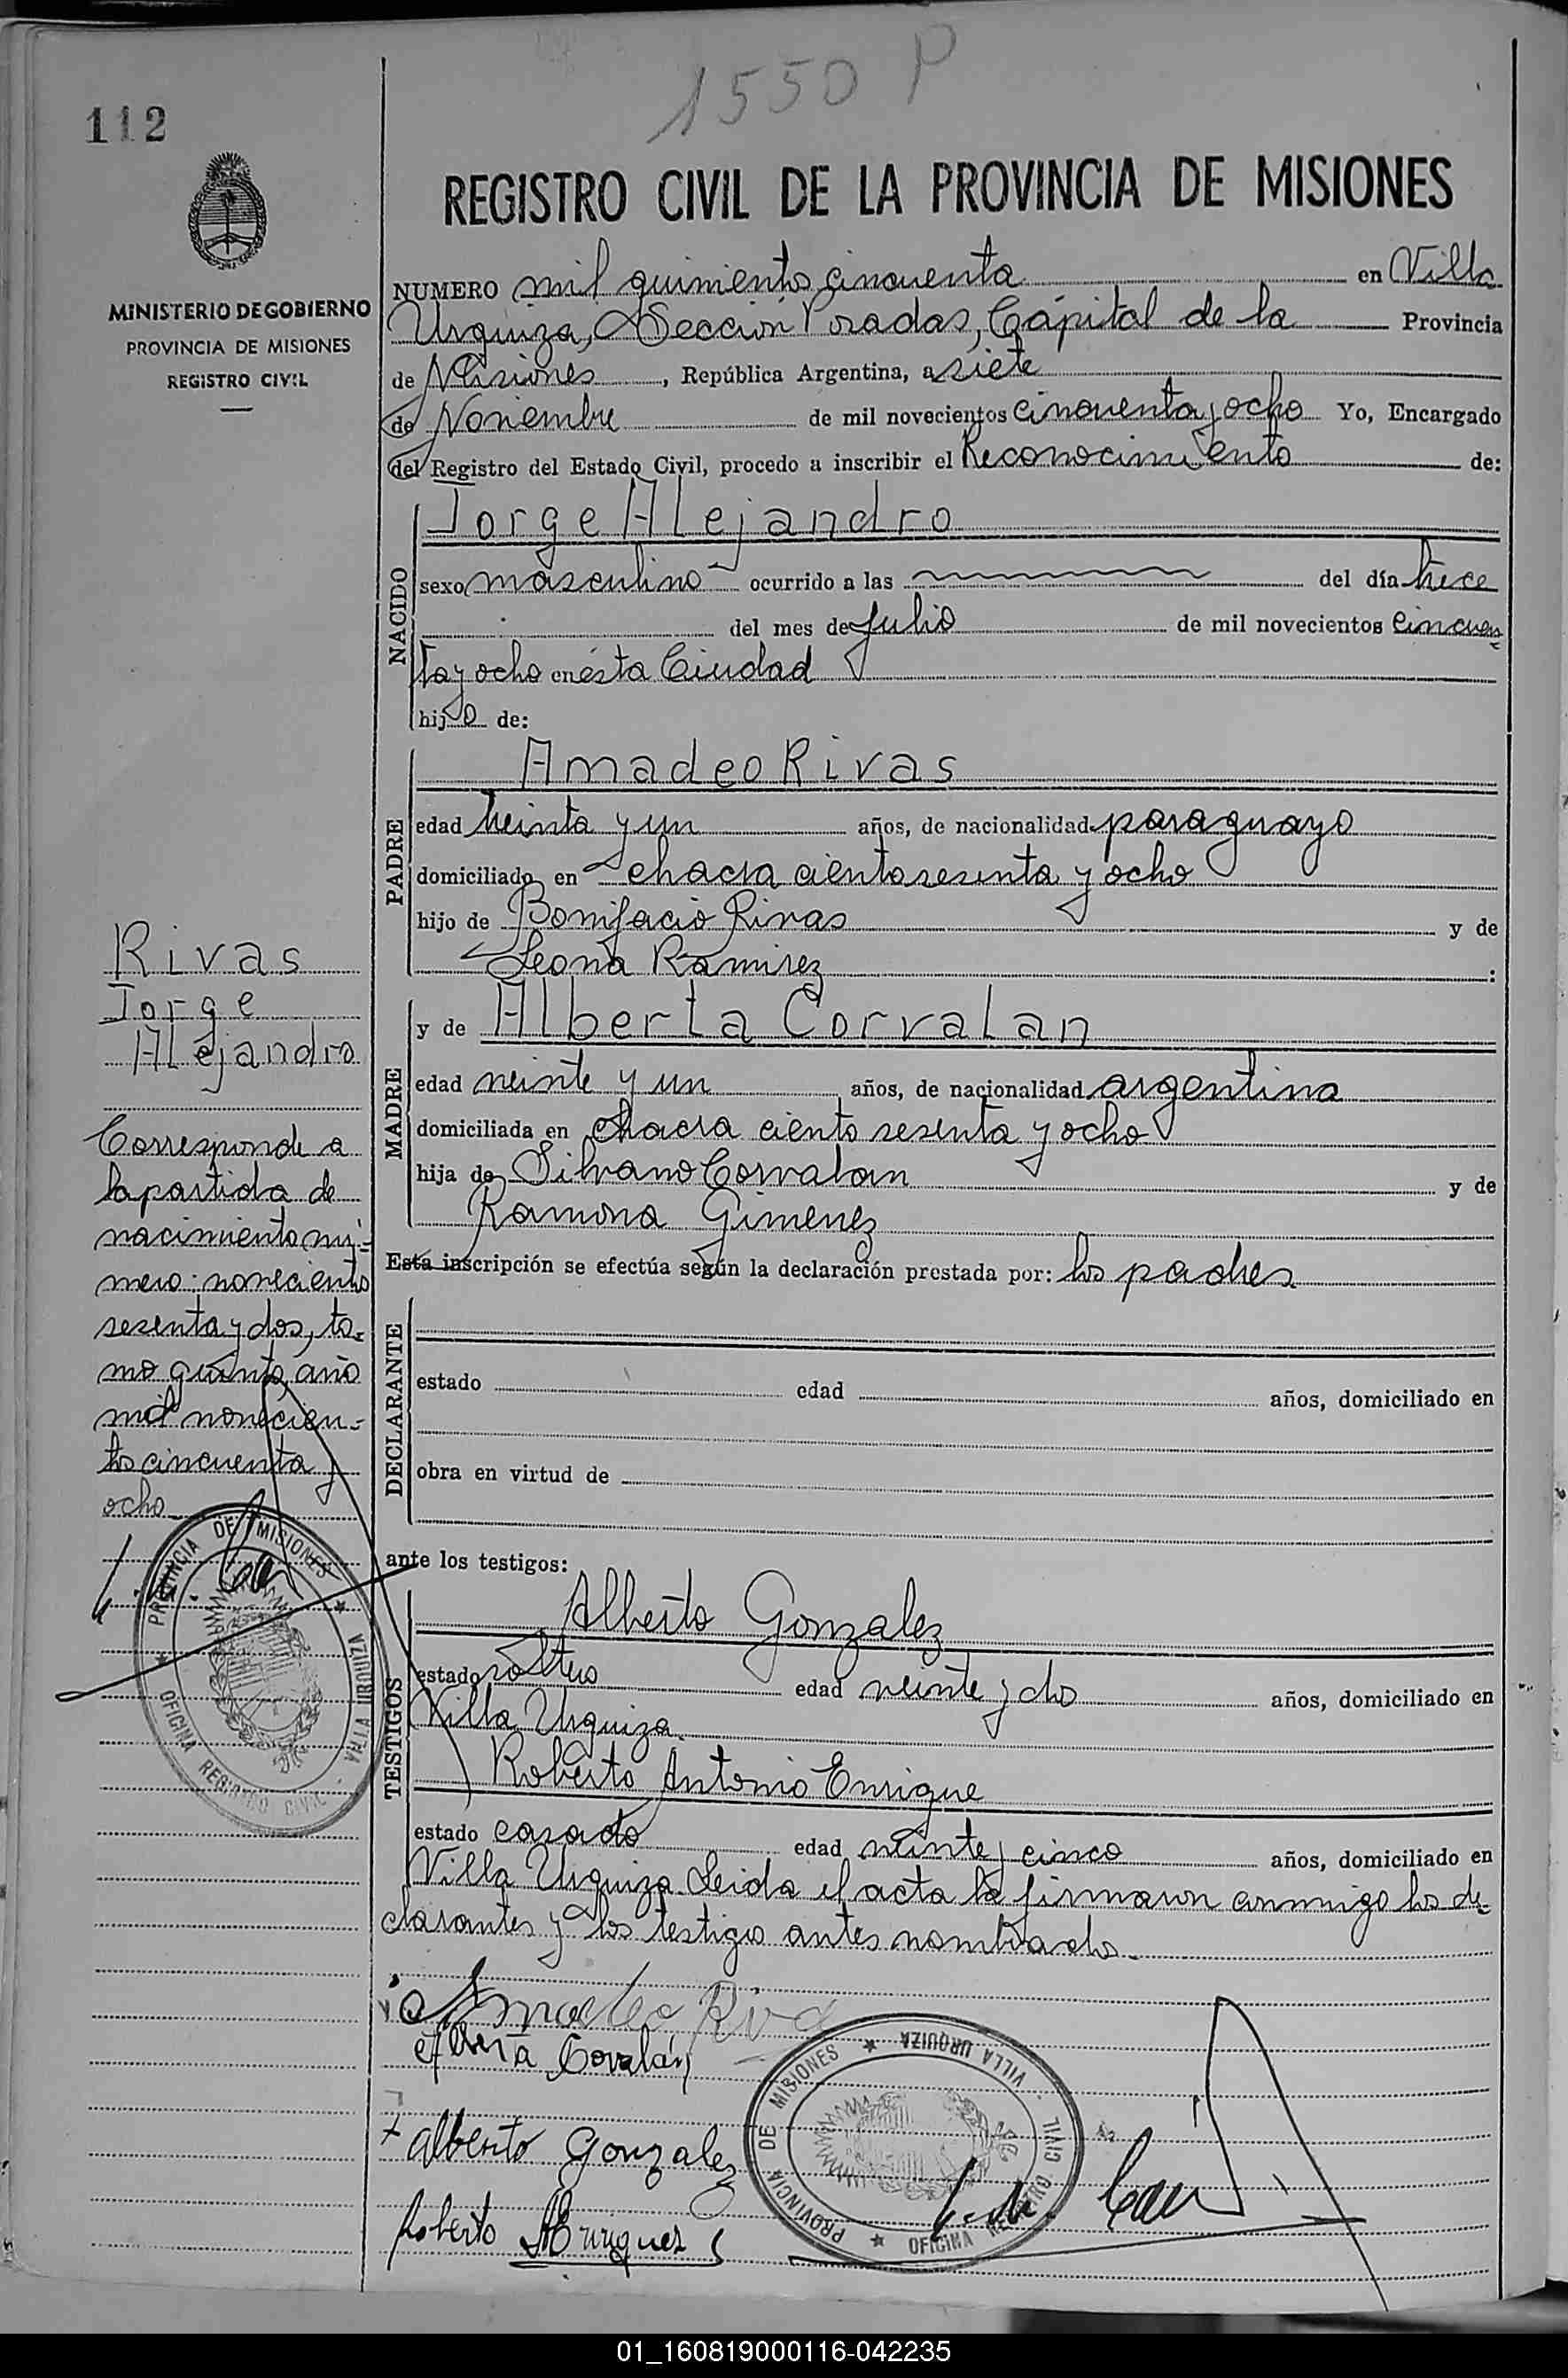 1550 P
112
MINISTERIO DE GOBIERNO
PROVINCIA DE MISIONES
REGISTRO CIVIL
REGISTRO CIVIL DE LA PROVINCIA DE MISIONES
NUMERO mil quinientos cincuenta en Villa
Urquiza, Sección Posadas, Cápital de la Provincia
de Misiones, República Argentina, a siete
de Noviembre de mil novecientos cincuenta y ocho Yo, Encargado
del Registro del Estado Civil, procedo a inscribir el Reconocimiento de:
NACIDO
Jorge Alejandro
sexo masculino ocurrido a las del día trece
del mes de Julio de mil novecientos cincuen
ta y ocho en ésta Ciudad
hijo de:
PADRE
Amadeo Rivas
edad treinta y un años, de nacionalidad paraguayo
domiciliado en chacra ciento sesenta y ocho
hijo de Bonifacio Rivas y de
Leona Ramirez :
MADRE
y de Alberta Corvalan
edad veinte y un años, de nacionalidad argentina
domiciliada en chacra ciento sesenta y ocho
hija de Silvano Corvalan y de
Ramona Gimenez
Esta inscripción se efectúa según la declaración prestada por: los padres
DECLARANTE
estado edad años, domiciliado en
obra en virtud de
ante los testigos:
TESTIGOS
Alberto Gonzalez
estado soltero edad veinte y dos años, domiciliado en
Villa Urquiza
Roberto Antonio Enrique
estado casado edad veinte y cinco años, domiciliado en
Villa Urquiza. Leida el acta la firmaron conmigo los de-
clarantes y los testigos antes nombrados.
Rivas
Jorge
Alejandro
Corresponde a
la partida de
nacimiento nú-
mero: novecientos
sesenta y dos, to-
mo quinto, año
mil novecien-
tos cincuenta y
ocho
PROVINCIA DE MISIONES ★ VILLA URQUIZA
OFICINA REGISTRO CIVIL ★
Amadeo Riva
Alberta Covalán
alberto Gonzalez
Roberto A Enriquez
PROVINCIA DE MISIONES ★ VILLA URQUIZA
OFICINA REGISTRO CIVIL ★
01_160819000116-042235